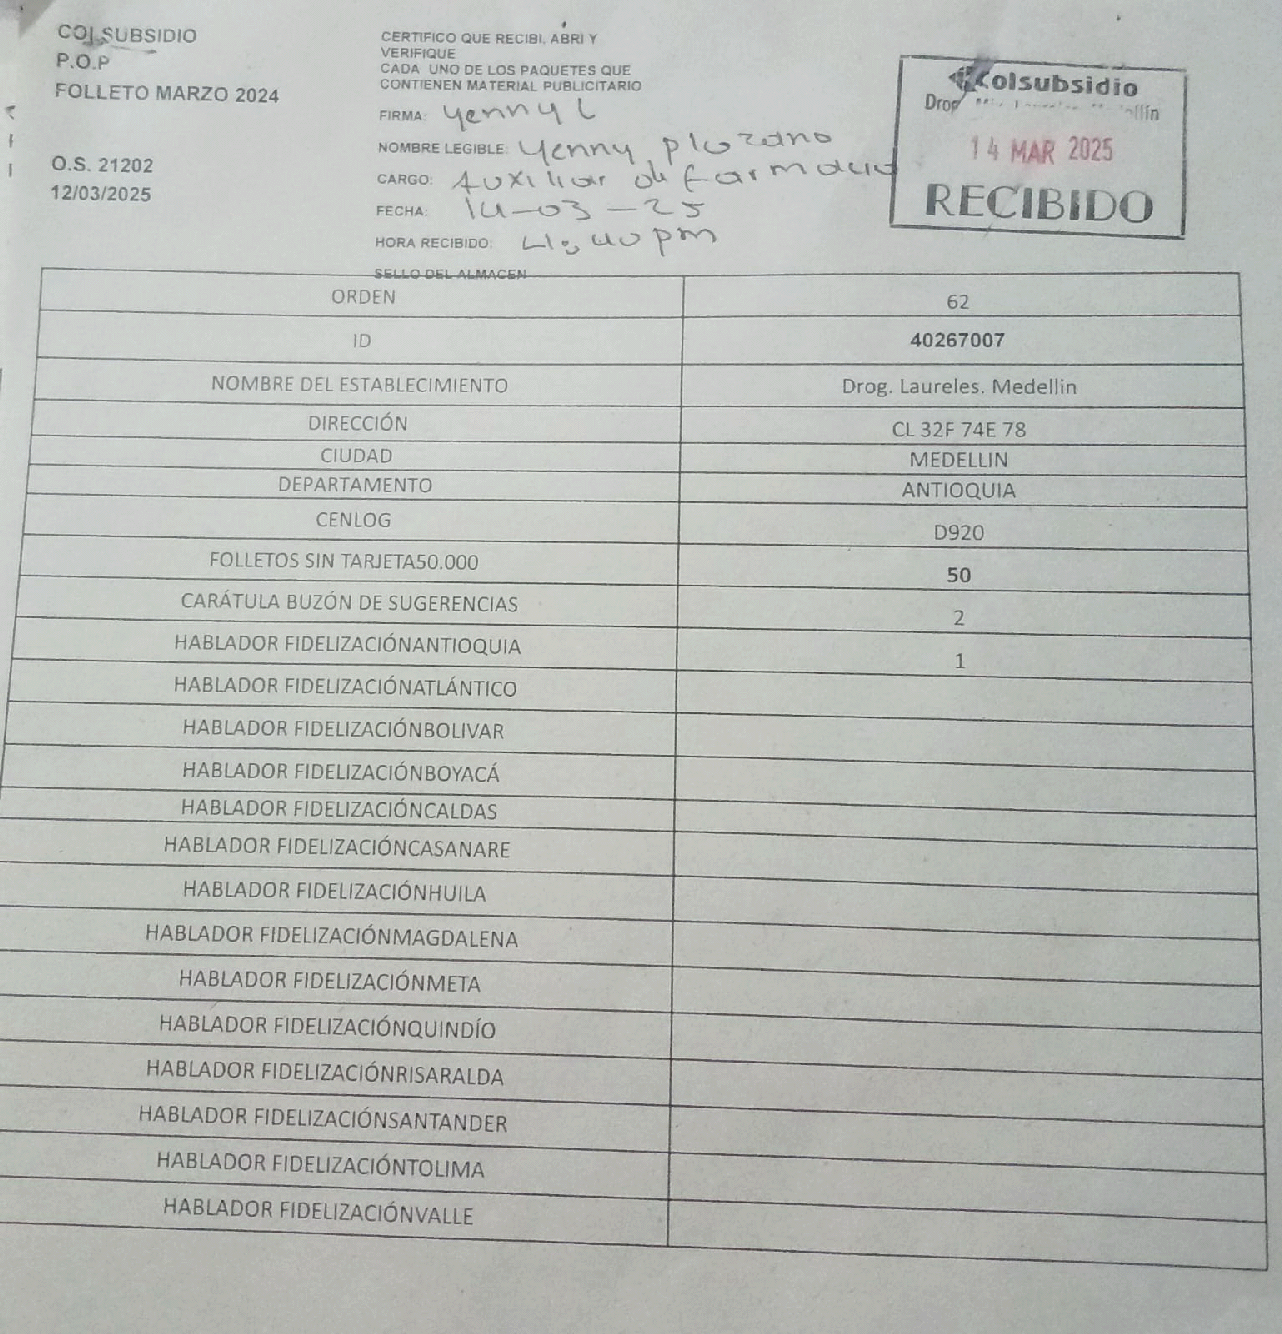 COLSUBSIDIO
P.O.P
FOLLETO MARZO 2024
O.S. 21202
12/03/2025
CERTIFICO QUE RECIBI, ABRI Y
VERIFIQUE
CADA UNO DE LOS PAQUETES QUE
CONTIENEN MATERIAL PUBLICITARIO
FIRMA: Yenny L
NOMBRE LEGIBLE: Yenny P Lozano
CARGO: Auxiliar de farmacia
FECHA: 14-03-25
HORA RECIBIDO: 4:40 pm
SELLO DEL ALMACEN
Colsubsidio
Drog
14 MAR 2025
RECIBIDO
ORDEN 62
ID 40267007
NOMBRE DEL ESTABLECIMIENTO Drog. Laureles. Medellin
DIRECCIÓN CL 32F 74E 78
CIUDAD MEDELLIN
DEPARTAMENTO ANTIOQUIA
CENLOG D920
FOLLETOS SIN TARJETA50.000 50
CARÁTULA BUZÓN DE SUGERENCIAS 2
HABLADOR FIDELIZACIÓNANTIOQUIA 1
HABLADOR FIDELIZACIÓNATLÁNTICO
HABLADOR FIDELIZACIÓNBOLIVAR
HABLADOR FIDELIZACIÓNBOYACÁ
HABLADOR FIDELIZACIÓNCALDAS
HABLADOR FIDELIZACIÓNCASANARE
HABLADOR FIDELIZACIÓNHUILA
HABLADOR FIDELIZACIÓNMAGDALENA
HABLADOR FIDELIZACIÓNMETA
HABLADOR FIDELIZACIÓNQUINDÍO
HABLADOR FIDELIZACIÓNRISARALDA
HABLADOR FIDELIZACIÓNSANTANDER
HABLADOR FIDELIZACIÓNTOLIMA
HABLADOR FIDELIZACIÓNVALLE